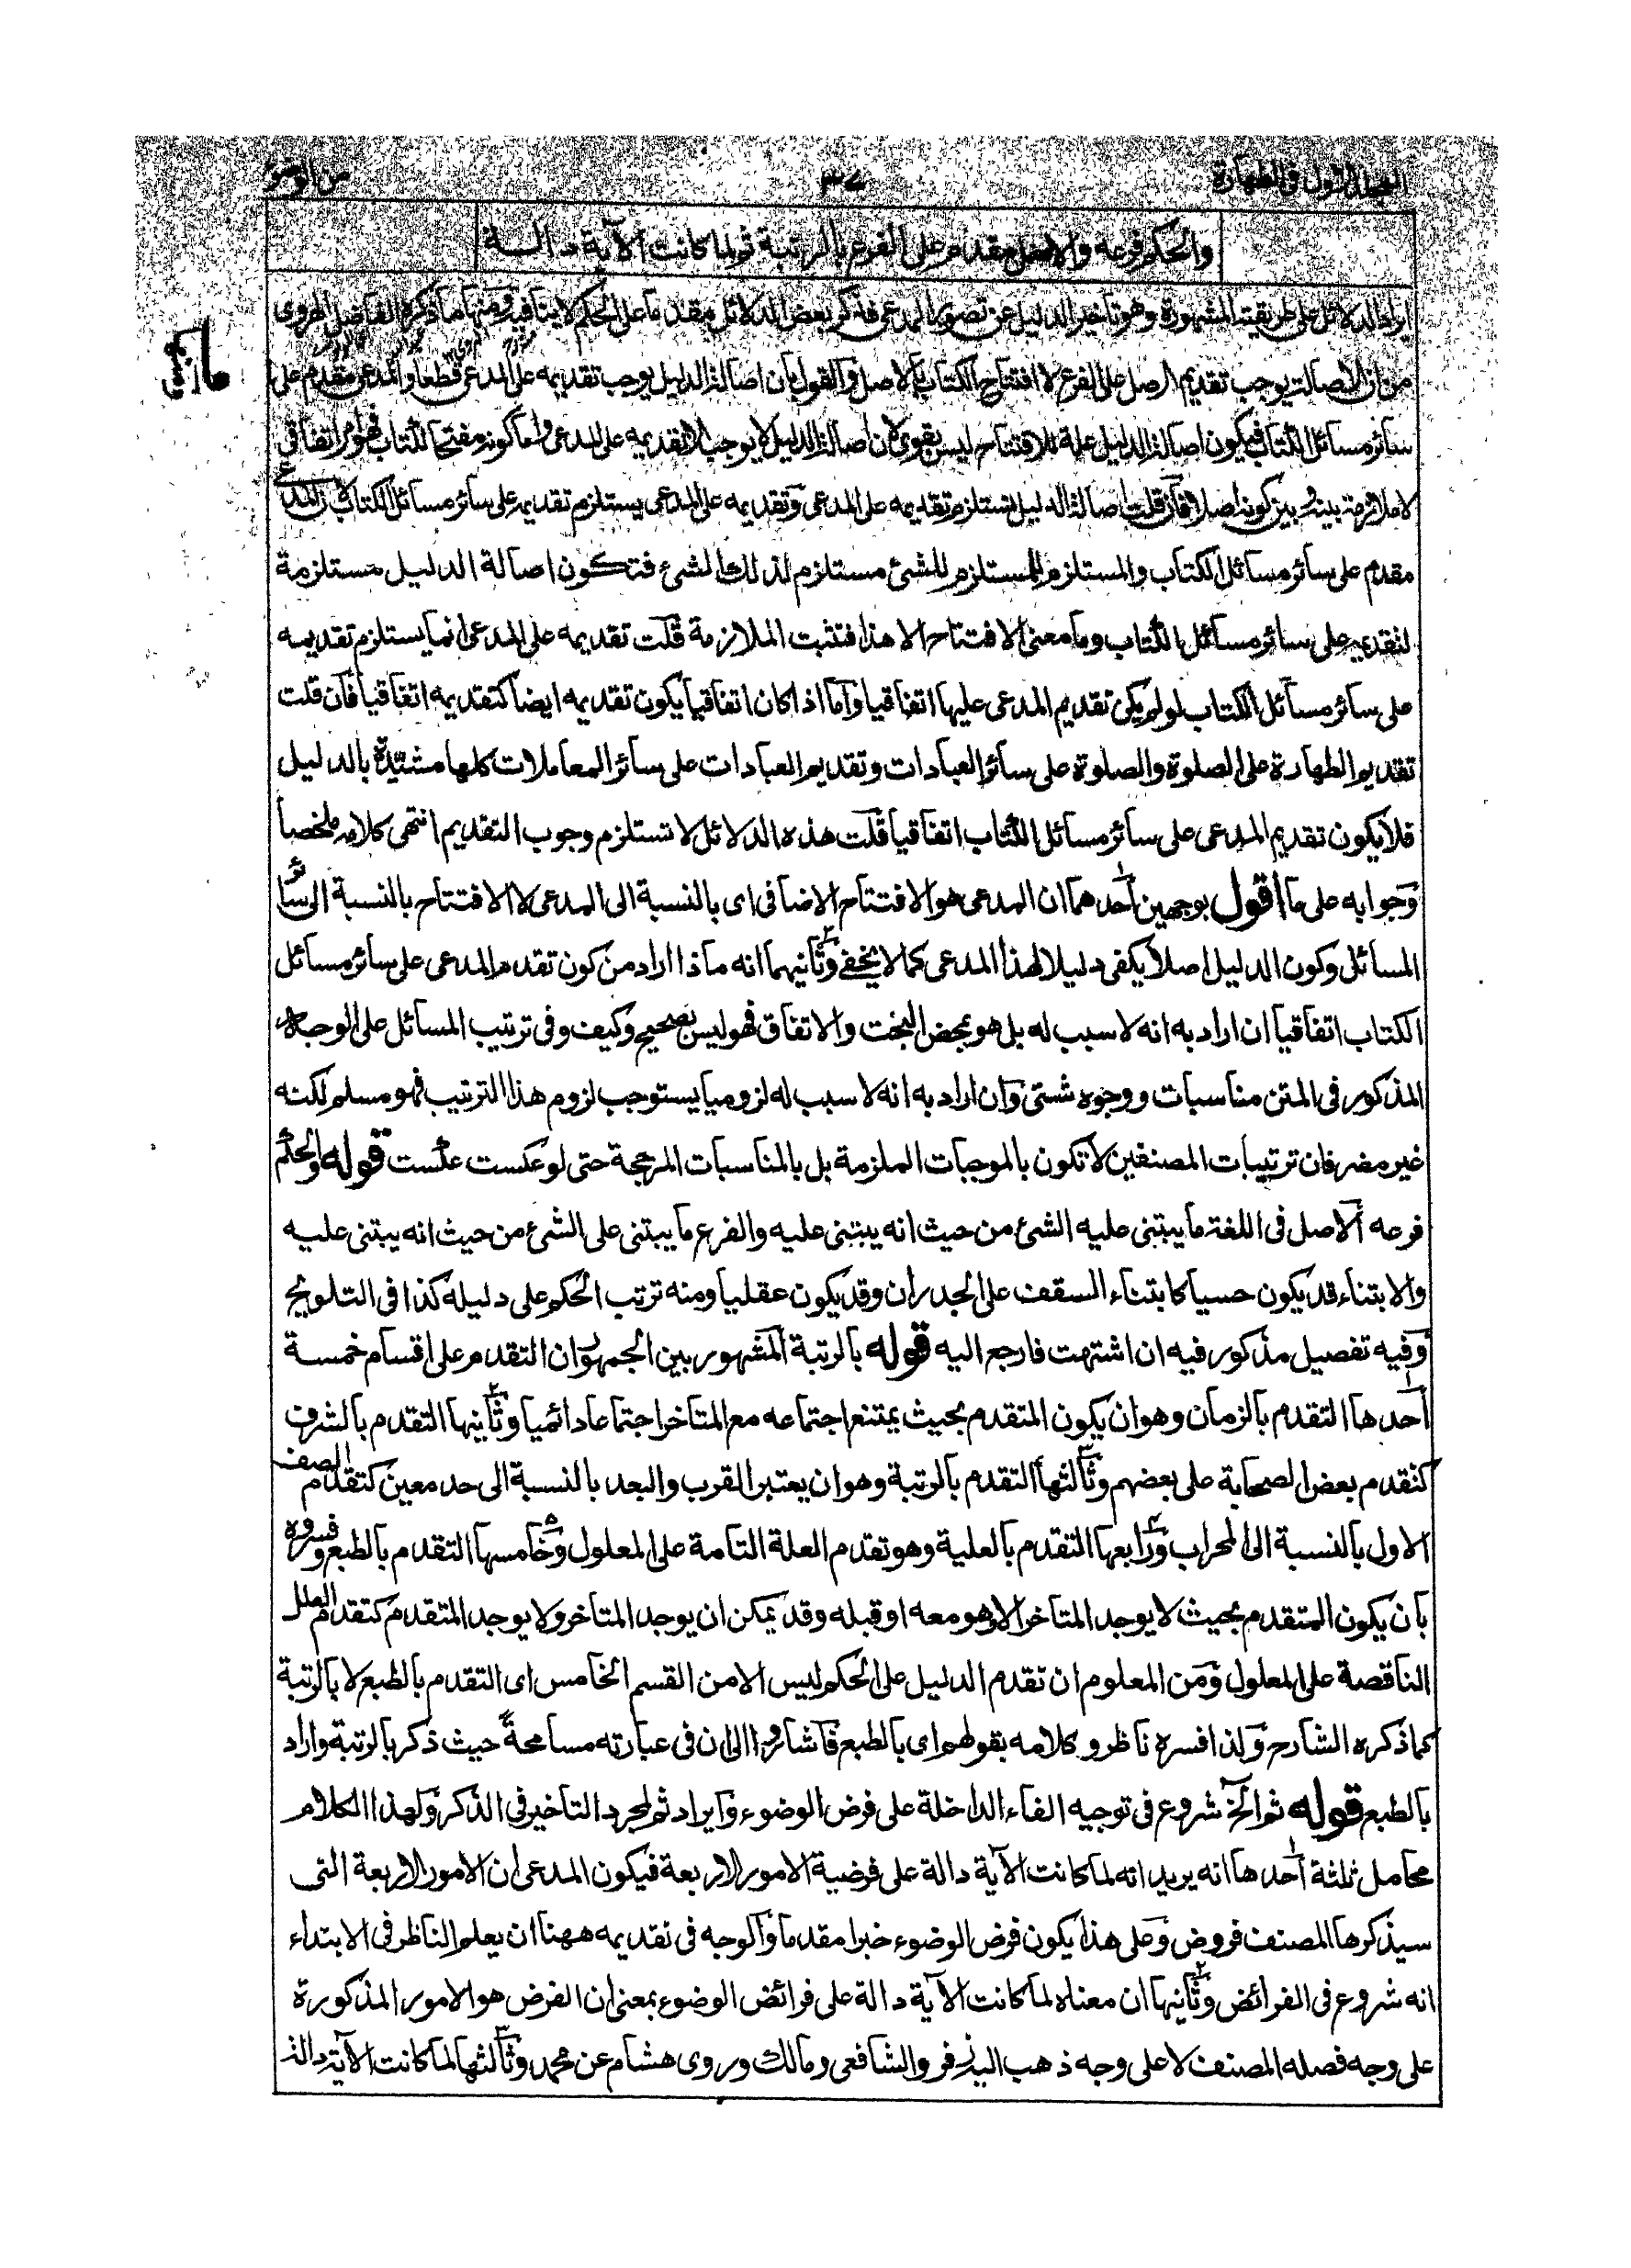 المجلد الاول فى الطهارة ٣٧ من الوضوء
والحكم فرعه والاصل مقدم على الفرع بالرتبة ثم لما كانت الآية دالة
ايراد الدلائل على طريقته المشهورة وهو تأخير الدليل عن تصوير المدعى فذكر بعض الدلائل مقدما على الحكم لا ينافيه ومنها ما ذكره الفاضل الهروى
من ان الاصالة يوجب تقديم الاصل على الفرع لا افتتاح الكتاب بالاصل والقول بان اصالة الدليل يوجب تقديمه على المدعى قطعا والمدعى مقدم على
سائر مسائل الكتاب فيكون اصالة الدليل علة للافتتاح ليس بقوى لان اصالة الدليل لا يوجب الا تقديمه على المدعى واما كونه مفتحا للكتاب فهو امر اتفاقى
لا ملازمة بينه وبين كونه اصلا فان قلت اصالة الدليل تستلزم تقديمه على المدعى وتقديمه على المدعى يستلزم تقديمه على سائر مسائل الكتاب لان المدعى
مقدم على سائر مسائل الكتاب والمستلزم للمستلزم للشئ مستلزم لذلك الشئ فتكون اصالة الدليل مستلزمة
لتقديمه على سائر مسائل الكتاب وما معنى الافتتاح الا هذا فتثبت الملازمة قلت تقديمه على المدعى انما يستلزم تقديمه
على سائر مسائل الكتاب لو لم يكن تقديم المدعى عليها اتفاقيا واما اذا كان اتفاقيا يكون تقديمه ايضا كتقديمه اتفاقيا فان قلت
تقديم الطهارة على الصلوة والصلوة على سائر العبادات وتقديم العبادات على سائر المعاملات كلها مشيّدة بالدليل
فلا يكون تقديم المدعى على سائر مسائل الكتاب اتفاقيا قلت هذه الدلائل لا تستلزم وجوب التقديم انتهى كلامه ملخصا
وجوابه على ما اقول بوجهين احدهما ان المدعى هو الافتتاح الاضافى اى بالنسبة الى المدعى لا الافتتاح بالنسبة الى سائر
المسائل وكون الدليل اصلا يكفى دليلا لهذا المدعى كما لا يخفى وثانيهما انه ماذا اراد من كون تقدم المدعى على سائر مسائل
الكتاب اتفاقيا ان اراد به انه لا سبب له بل هو بمحض البخت والاتفاق فهو ليس بصحيح وكيف وفى ترتيب المسائل على الوجه
المذكور فى المتن مناسبات ووجوه شتى وان اراد به انه لا سبب له لزوميا يستوجب لزوم هذا الترتيب فهو مسلم لكنه
غير مضر فان ترتيبات المصنفين لا تكون بالموجبات الملزمة بل بالمناسبات المرجحة حتى لو عكست عكست قوله والحكم
فرعه الاصل فى اللغة ما يبتنى عليه الشئ من حيث انه يبتنى عليه والفرع ما يبتنى على الشئ من حيث انه يبتنى عليه
والابتناء قد يكون حسيا كابتناء السقف على الجدران وقد يكون عقليا ومنه ترتب الحكم على دليله كذا فى التلويح
وفيه تفصيل مذكور فيه ان اشتهت فارجع اليه قوله بالرتبة المشهور بين الجمهور ان التقدم على اقسام خمسة
احدها التقدم بالزمان وهو ان يكون المتقدم بحيث يمتنع اجتماعه مع المتاخر اجتماعا دائميا وثانيها التقدم بالشرف
كتقدم بعض الصحابة على بعضهم وثالثها التقدم بالرتبة وهو ان يعتبر القرب والبعد بالنسبة الى حد معين كتقدم الصف
الاول بالنسبة الى المحراب ورابعها التقدم بالعلية وهو تقدم العلة التامة على المعلول وخامسها التقدم بالطبع وفسروه
بان يكون المتقدم بحيث لا يوجد المتاخر الا وهو معه او قبله وقد يمكن ان يوجد المتاخر ولا يوجد المتقدم كتقدم العلل
الناقصة على المعلول ومن المعلوم ان تقدم الدليل على الحكم ليس الا من القسم الخامس اى التقدم بالطبع لا بالرتبة
كما ذكره الشارح ولذا فسره ناظرو كلامه بقولهم اى بالطبع فاشاروا الى ان فى عبارته مسامحة حيث ذكر بالرتبة واراد
بالطبع قوله ثم الخ شروع فى توجيه الفاء الداخلة على فرض الوضوء وايراد ثم لمجرد التاخير فى الذكر ولهذا الكلام
محامل ثلثة احدها انه يريد انه لما كانت الآية دالة على فرضية الامور الاربعة فيكون المدعى ان الامور الاربعة التى
سيذكرها المصنف فروض وعلى هذا يكون فرض الوضوء خبرا مقدما والوجه فى تقديمه ههنا ان يعلم الناظر فى الابتداء
انه شروع فى الفرائض وثانيها ان معناه لما كانت الآية دالة على فرائض الوضوء بمعنى ان الفرض هو الامور المذكورة
على وجه فصله المصنف لا على وجه ذهب اليه زفر والشافعى ومالك وروى هشام عن محمد وثالثها لما كانت الآية دالة